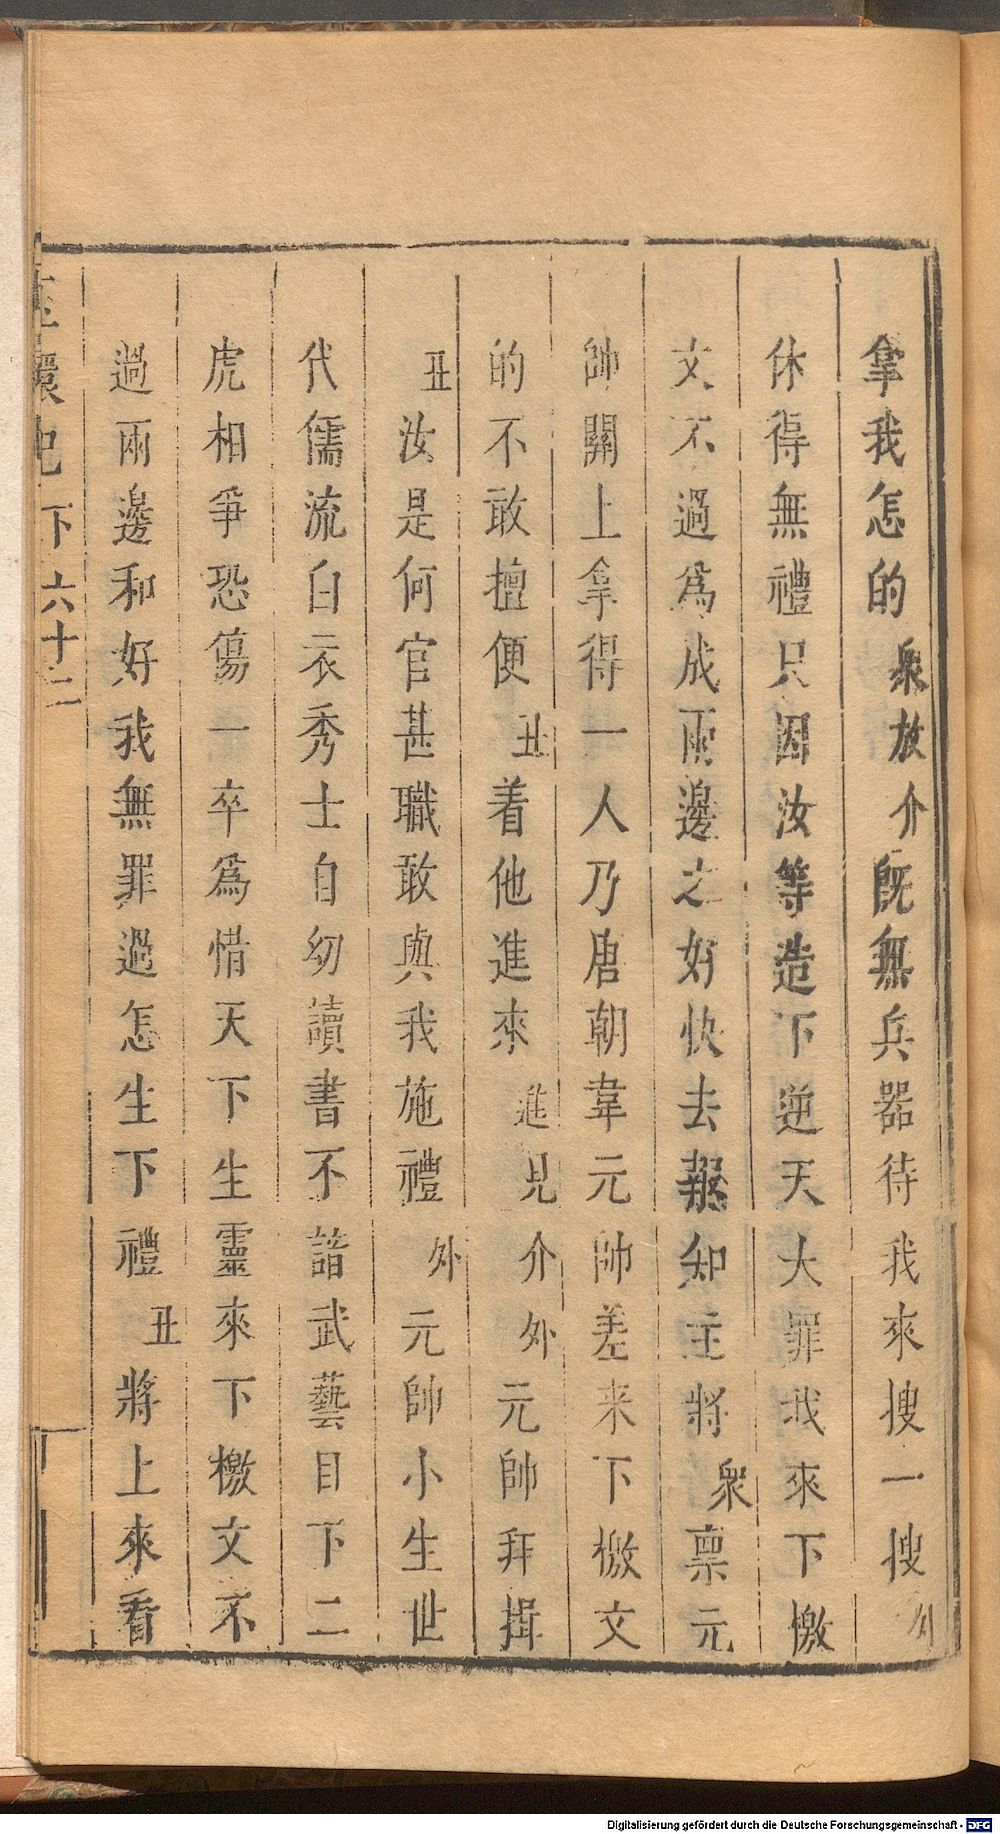 拿我怎的衆放介旣無兵器待我來搜一搜外
休得無禮只因汝等造下逆天大罪我來下檄
文不過爲成兩邊之好快去報知主將衆禀元
帥關上拿得一人乃唐朝韋元帥差来下檄文
的不敢擅便丑着他進來進見介外元帥拜揖
丑汝是何官甚職敢與我施禮外元帥小生世
代儒流白衣秀士自幼讀書不諳武藝目下二
虎相爭恐傷一卒爲惜天下生靈來下檄文不
過兩邊和好我無罪過怎生下禮丑將上來看
玉環记 下 六十二
Digitalisierung gefördert durch die Deutsche Forschungsgemeinschaft - DFG